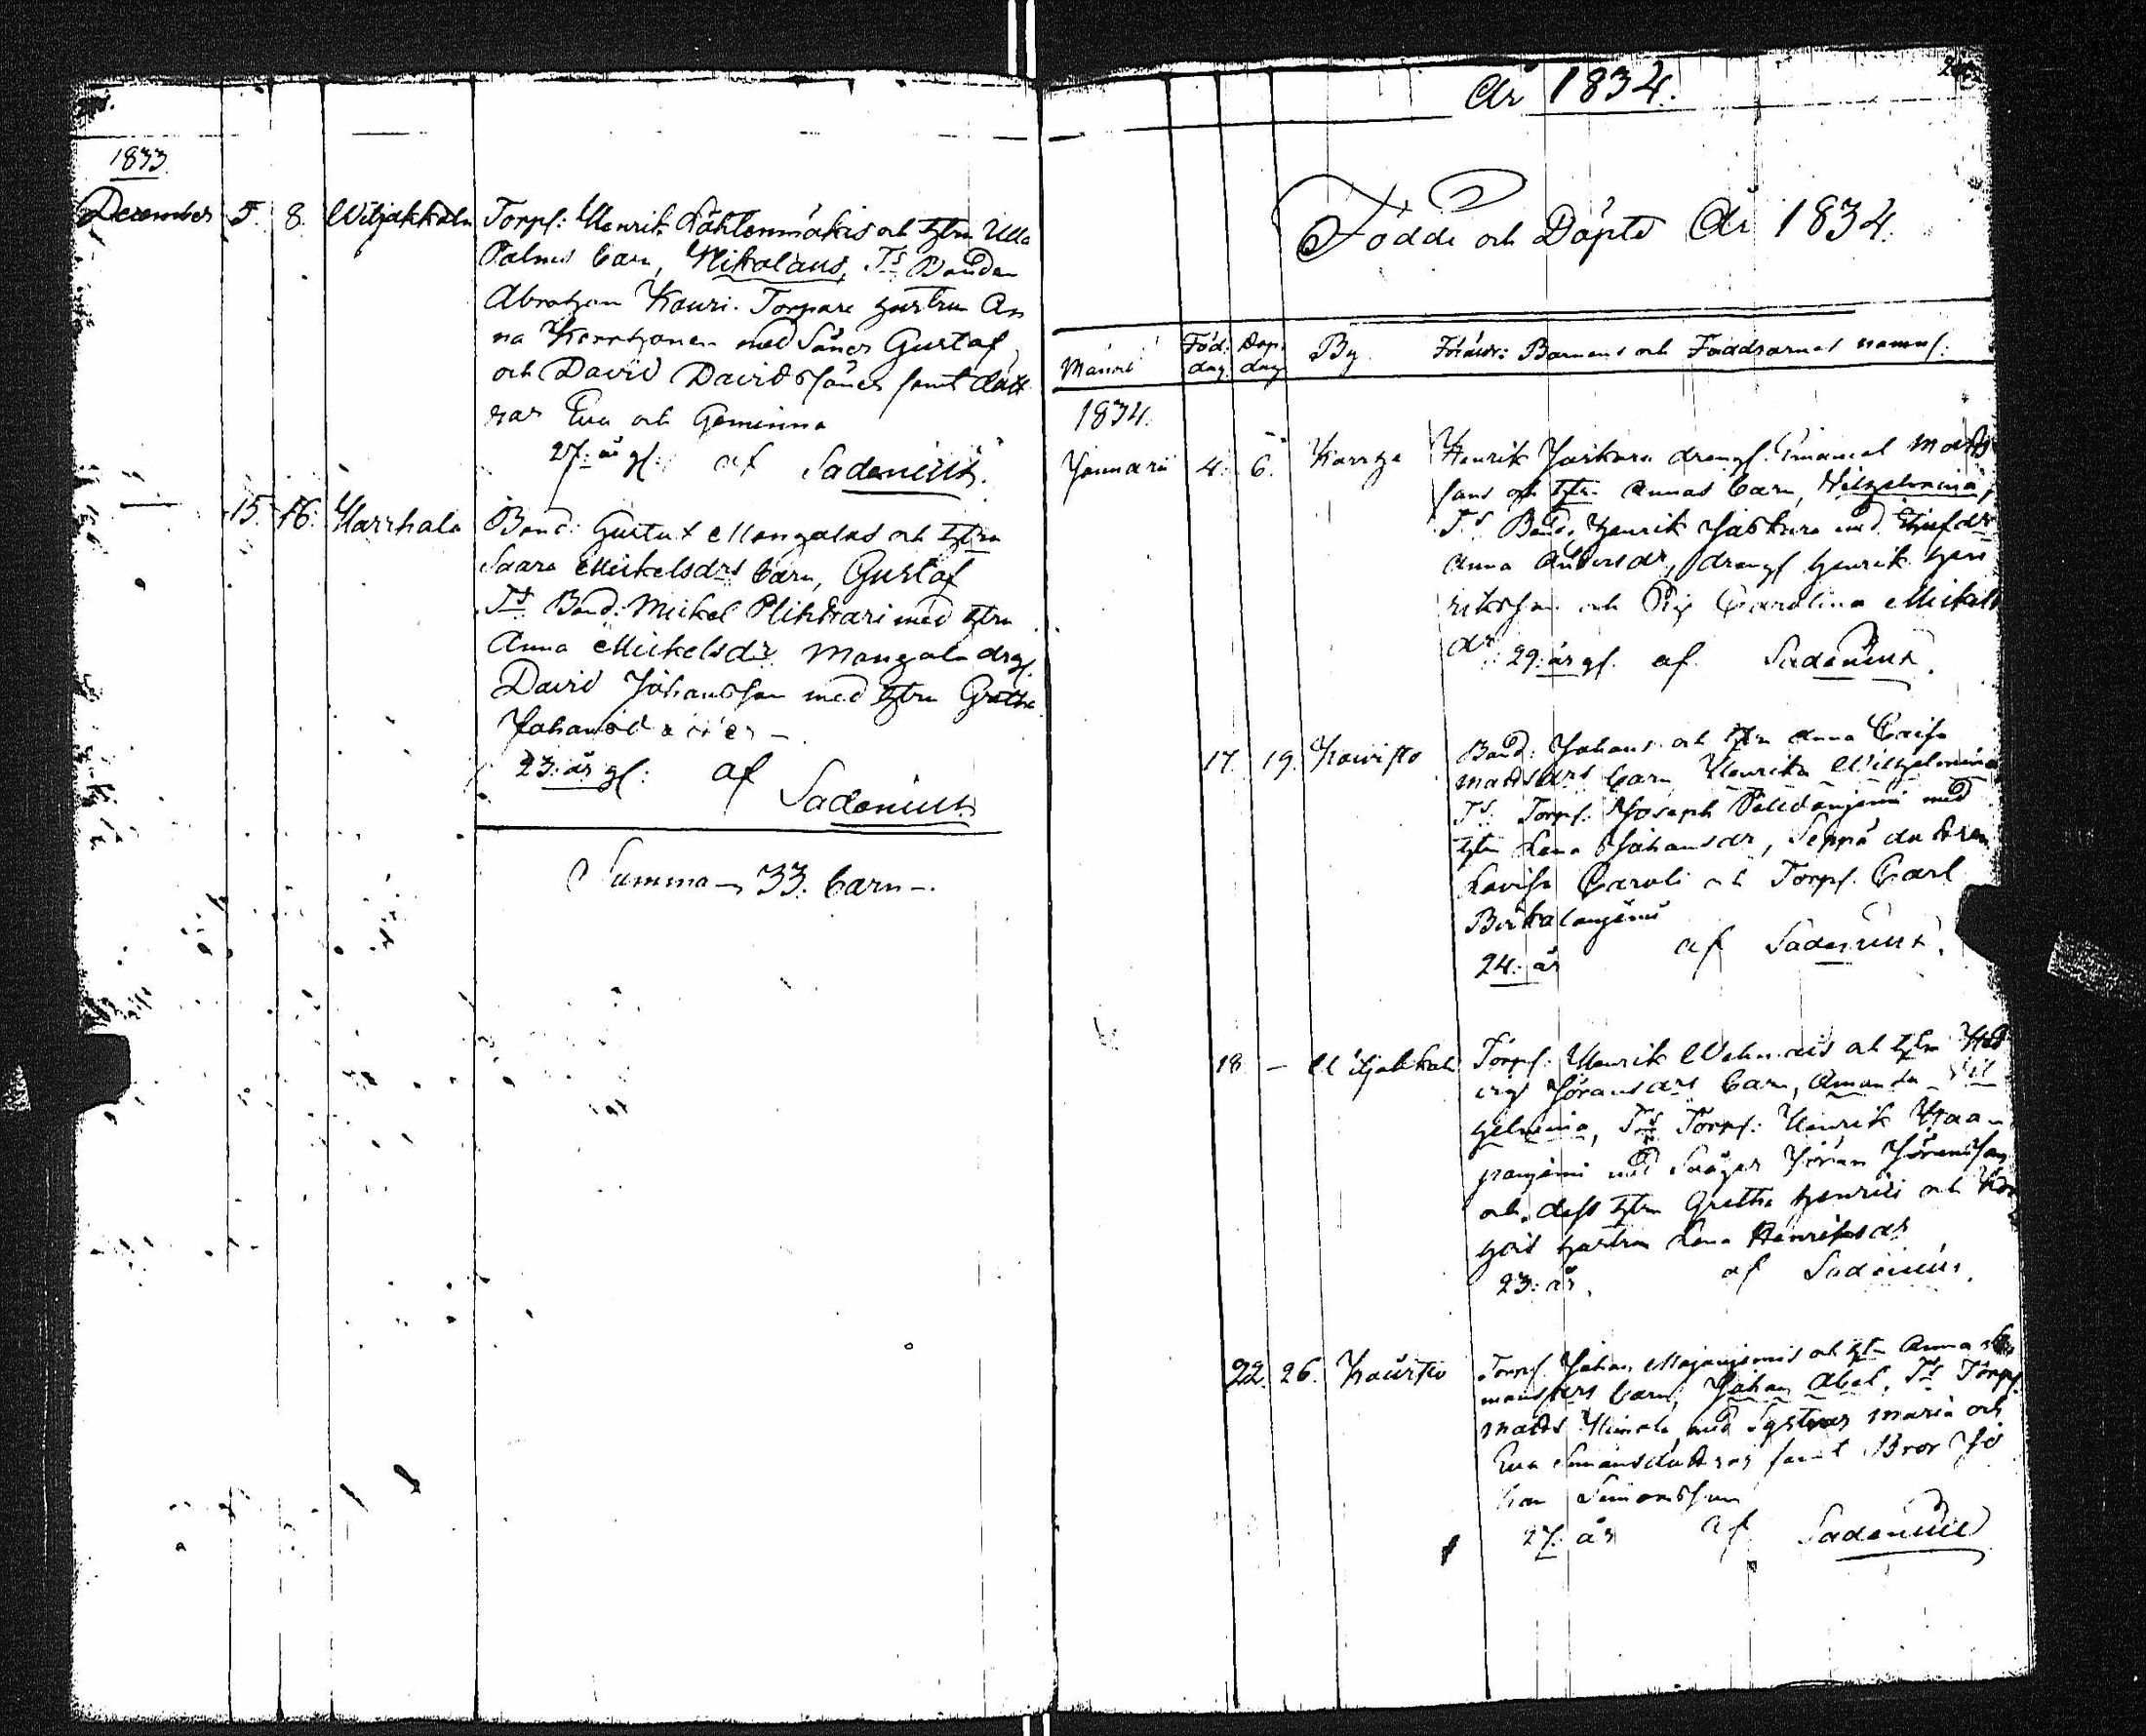 1833
December 5. 8. Wiljakkala Torpf: Henrik Lähtenmäkis och hstru Ulla
Palmes barn, Nikolaus, Ts Bonden
Abraham Kauri. Torpare hustrun An
na Karrhonen med Söner Gustaf
och David Davidssöner samt dött
rar Eva och Gemina
27. år gl: af Sadenius.
15. 16. Harrhala Bond: Gustaf Mangalas och hstru
Saara Mickelsdrs barn, Gustaf
Ts Bond: Mickel Plihtari med hstru
Anna Mickelsdr. Mangala drgs
David Johansson med hstru Gretha
Johansd
23. år gl: af
Sadenius
Summa 33. barn
År 1834.
Födde och Döpte År 1834.
Månad Föd. dag Döp. dag By Föräldr: Barnens och Faddrarnes namn:
1834.
Januarii 4. 6. Karrhe Henrik Jaskara drengs. Emanuel Matts
sons och hstru Annas barn, Wilhelmina,
Ts Bond. Henrik Jaskara med
Anna Andersdr, drengs Henrik Hen
riksson och Pig Carolina Mickels
dr 29. år gl. af Sadenius.
17. 19. Kowisto Bond: Johans och hstru Anna Caisa
Mattsdrs barn Henrika Wilhelmina
Ts Torpf: Joseph med
hstru Lena Johansdr, Seppä dottren
Lovisa Caroli och Torpf. Carl
24. år af Sadenius.
18 — Wiljakkala Torpf: Henrik och hstru Hed
vig Jöransdrs barn, Amanda Wil
helmina, Ts Torpf: Henrik Haa
panjemi med Svåger Jöran Jöransson
och dess hstru Gretha Henrici och
hustrun Lena Henriksdr
23. år. af Sadenius.
22. 26. Kowisto Torpf. Johan Majanjemis och hstru Anna
barn, Johan Abel, Ts Torpf.
Matts med Systrar Maria och
Eva Simonsdöttrar samt Bror Jo
han Simonsson
27. år af Sadenius